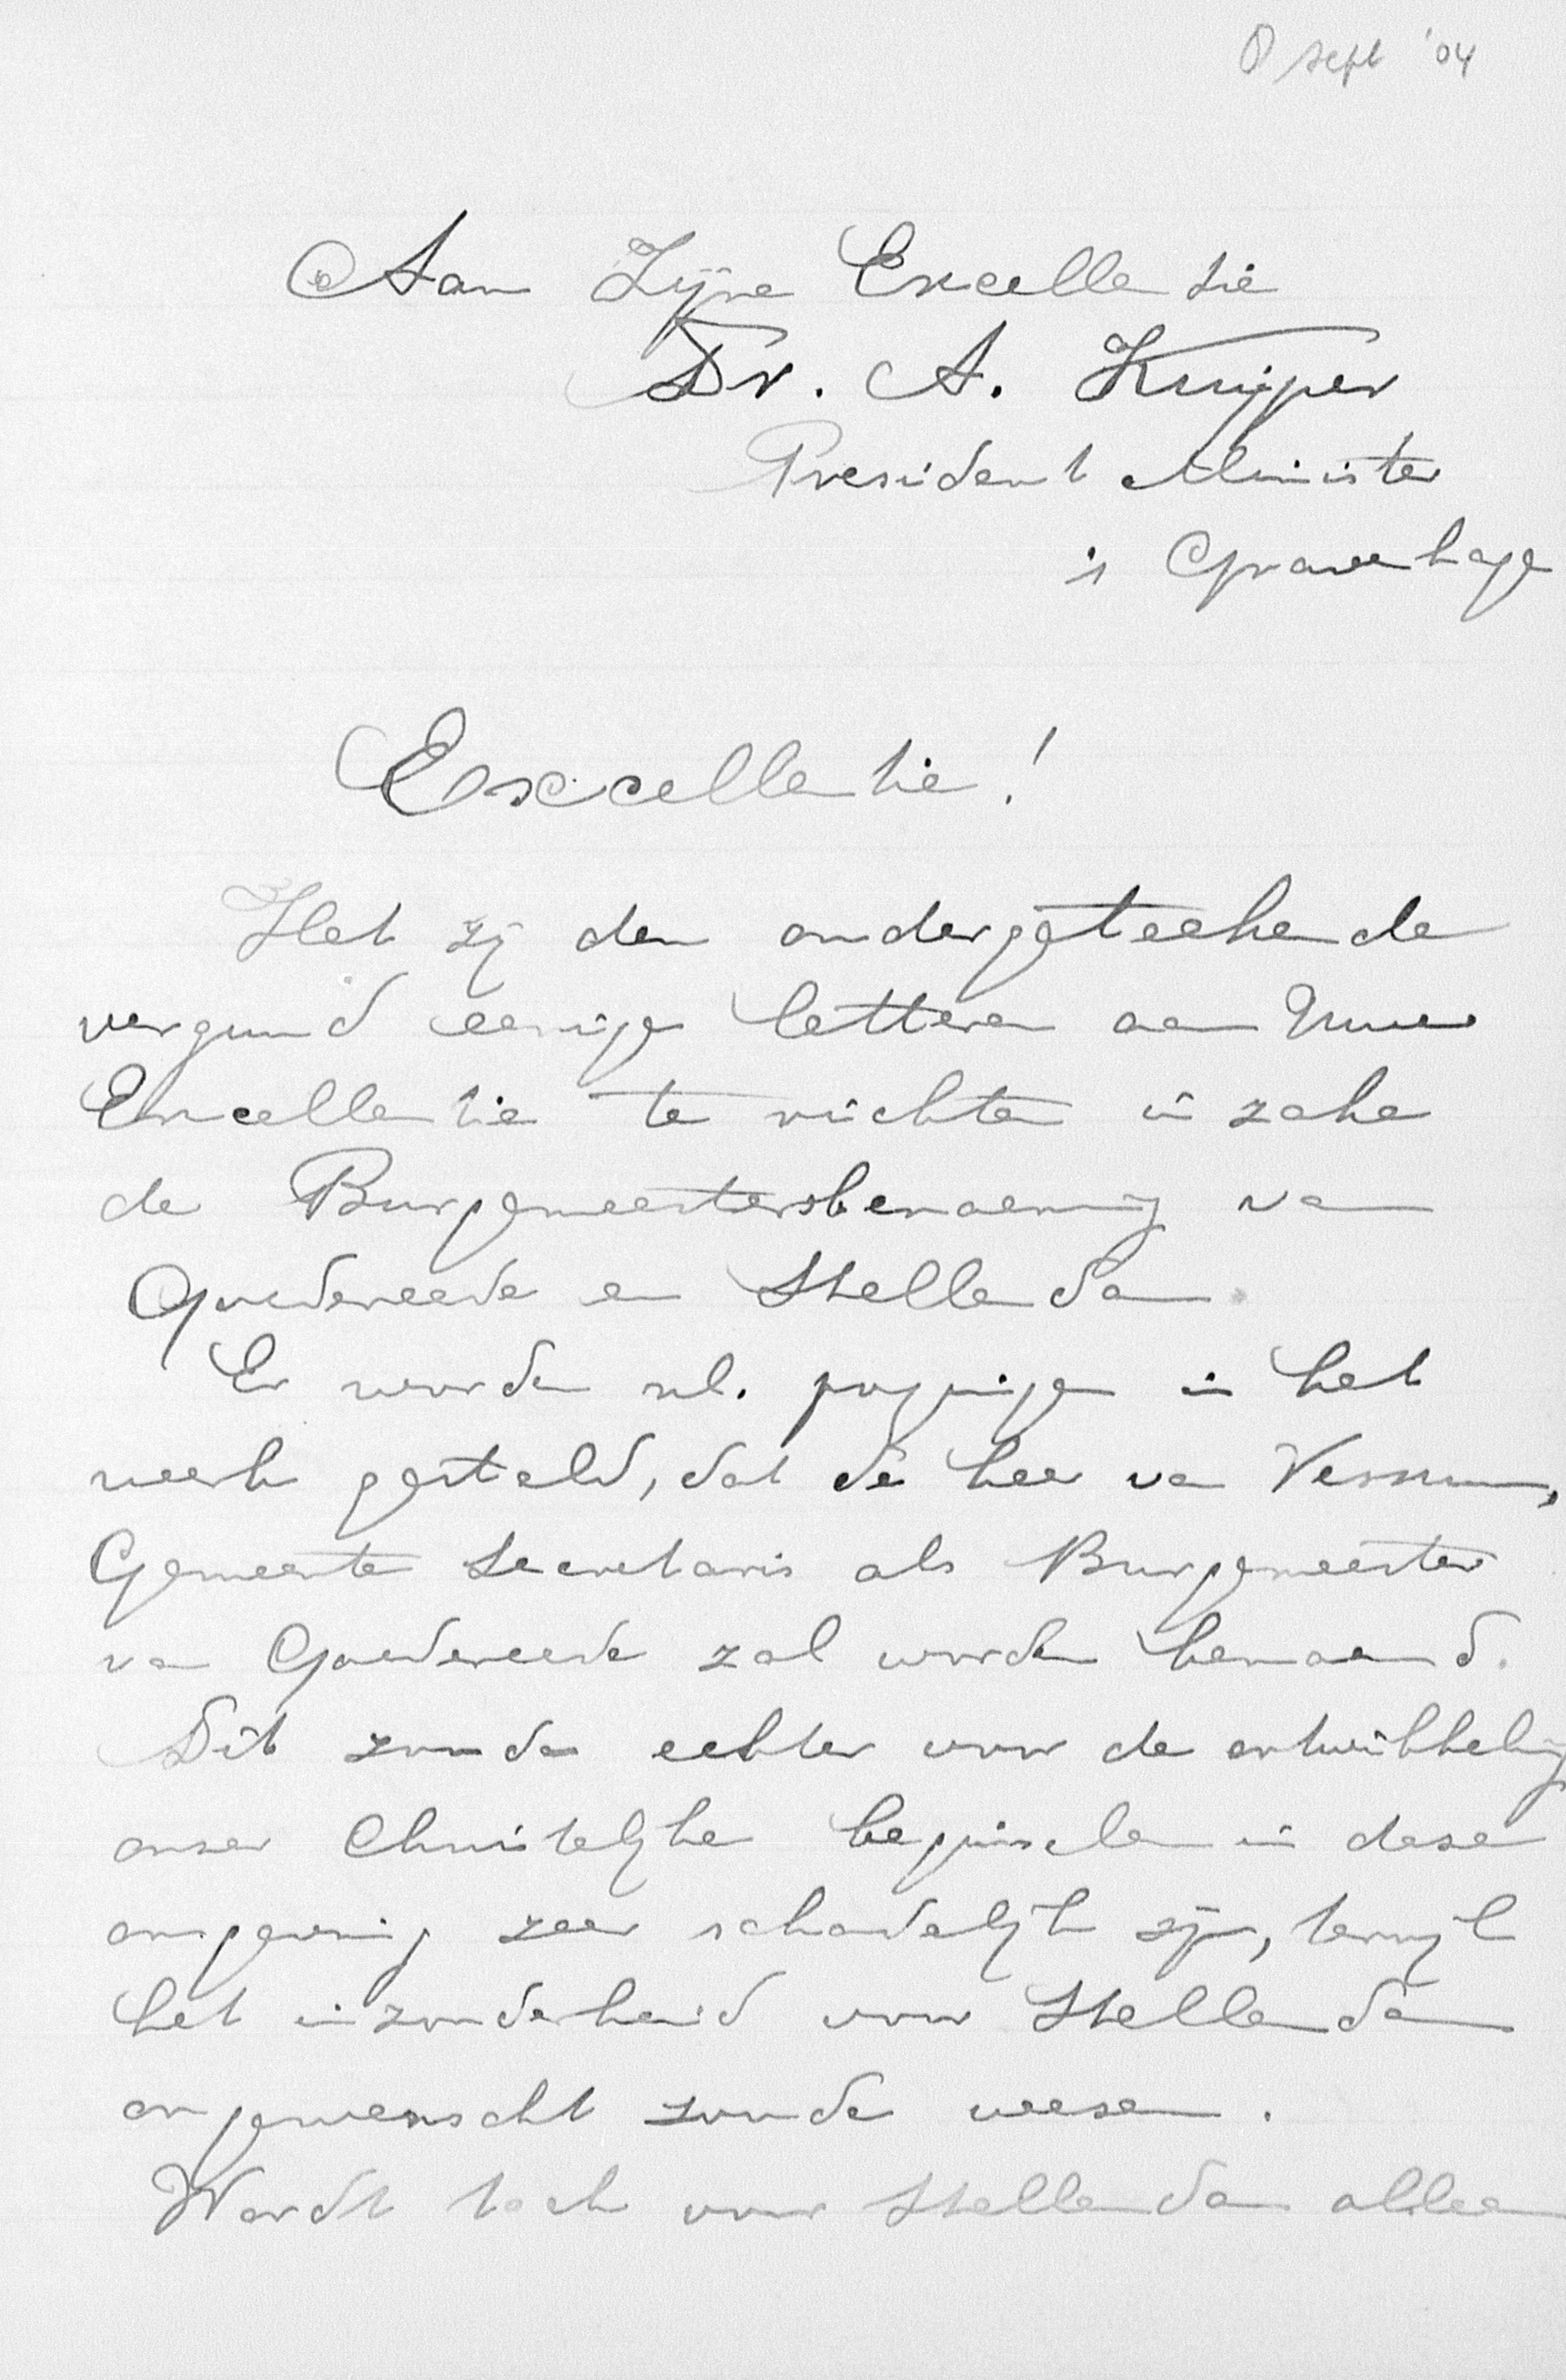 8 sept '04
Aan Zijne Excellentie
Dr. A. Kuijper
President Minister
's Gravenhage
Excellentie!
Het zij den ondergeteekende
vergund eenige letteren aan Uwe
Excellentie te richten in zake
de Burgemeestersbenoeming van
Goedereede en Stellendam.
Er worden nl. pogingen in het
werk gesteld, dat de heer van Vessum,
Gemeente Secretaris als Burgemeester
van Goedereede zal worden benoemd.
Dit zoude echter voor de ontwikkeling
onser Christelijke beginselen in dese
omgeving zeer schadelijk zijn, terwijl
het inzonderheid voor Stellendam
ongewenscht zoude wesen.
Wordt toch voor Stellendam alleen